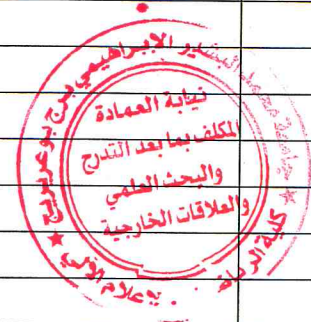 جامعة محمد البشير الإبراهيمي برج بوعريريج
نيابة العمادة
المكلف بما بعد التدرج
والبحث العلمي
والعلاقات الخارجية
كلية الرياضيات
الإعلام الآلي